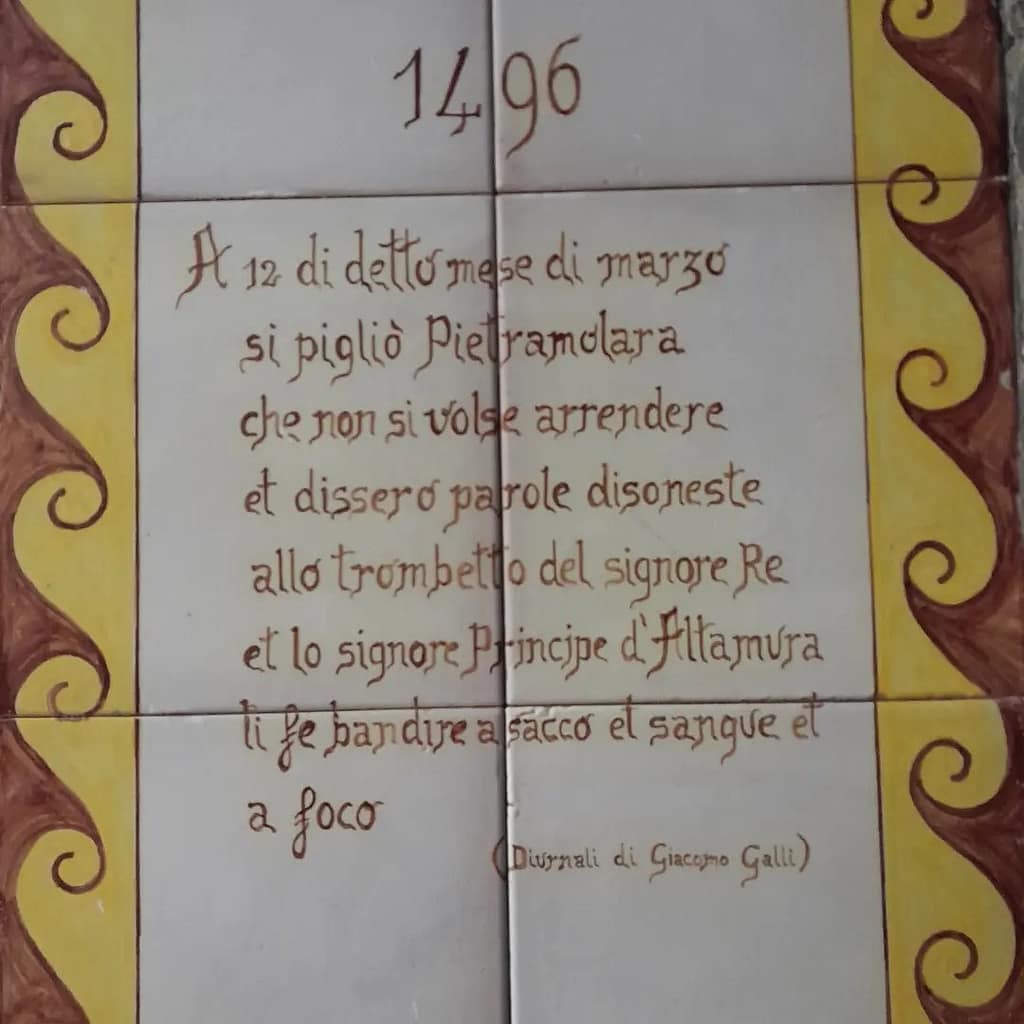 1496
A 12 di detto mese di marzo
si pigliò Pietramolara
che non si volse arrendere
et dissero parole disoneste
allo trombetto del signore Re
et lo signore Principe d'Altamura
li fe bandire a sacco et sangue et
a foco
(Diurnali di Giacomo Galli)